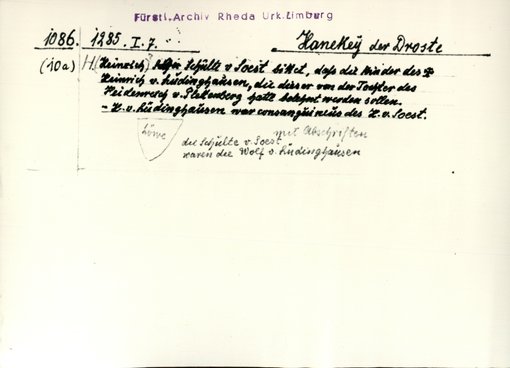 Fürstl. Archiv Rheda Urk. Limburg
1086. 1285. I. 7. Hanekey der Droste
(10a) H(Heinrich) Schülte v Soest bittet, dass die Kinder des
Heinrich v. Lüdinghausen, die dieser von der Tochter des
Heidenreich v. Plettenberg hatte belehnt werden sollen.
- H. v. Lüdinghausen war consanguinius des H. v. Soest.
Löwe mit Abschriften
die Schülte v. Soest
waren die Wolf v. Lüdinghausen